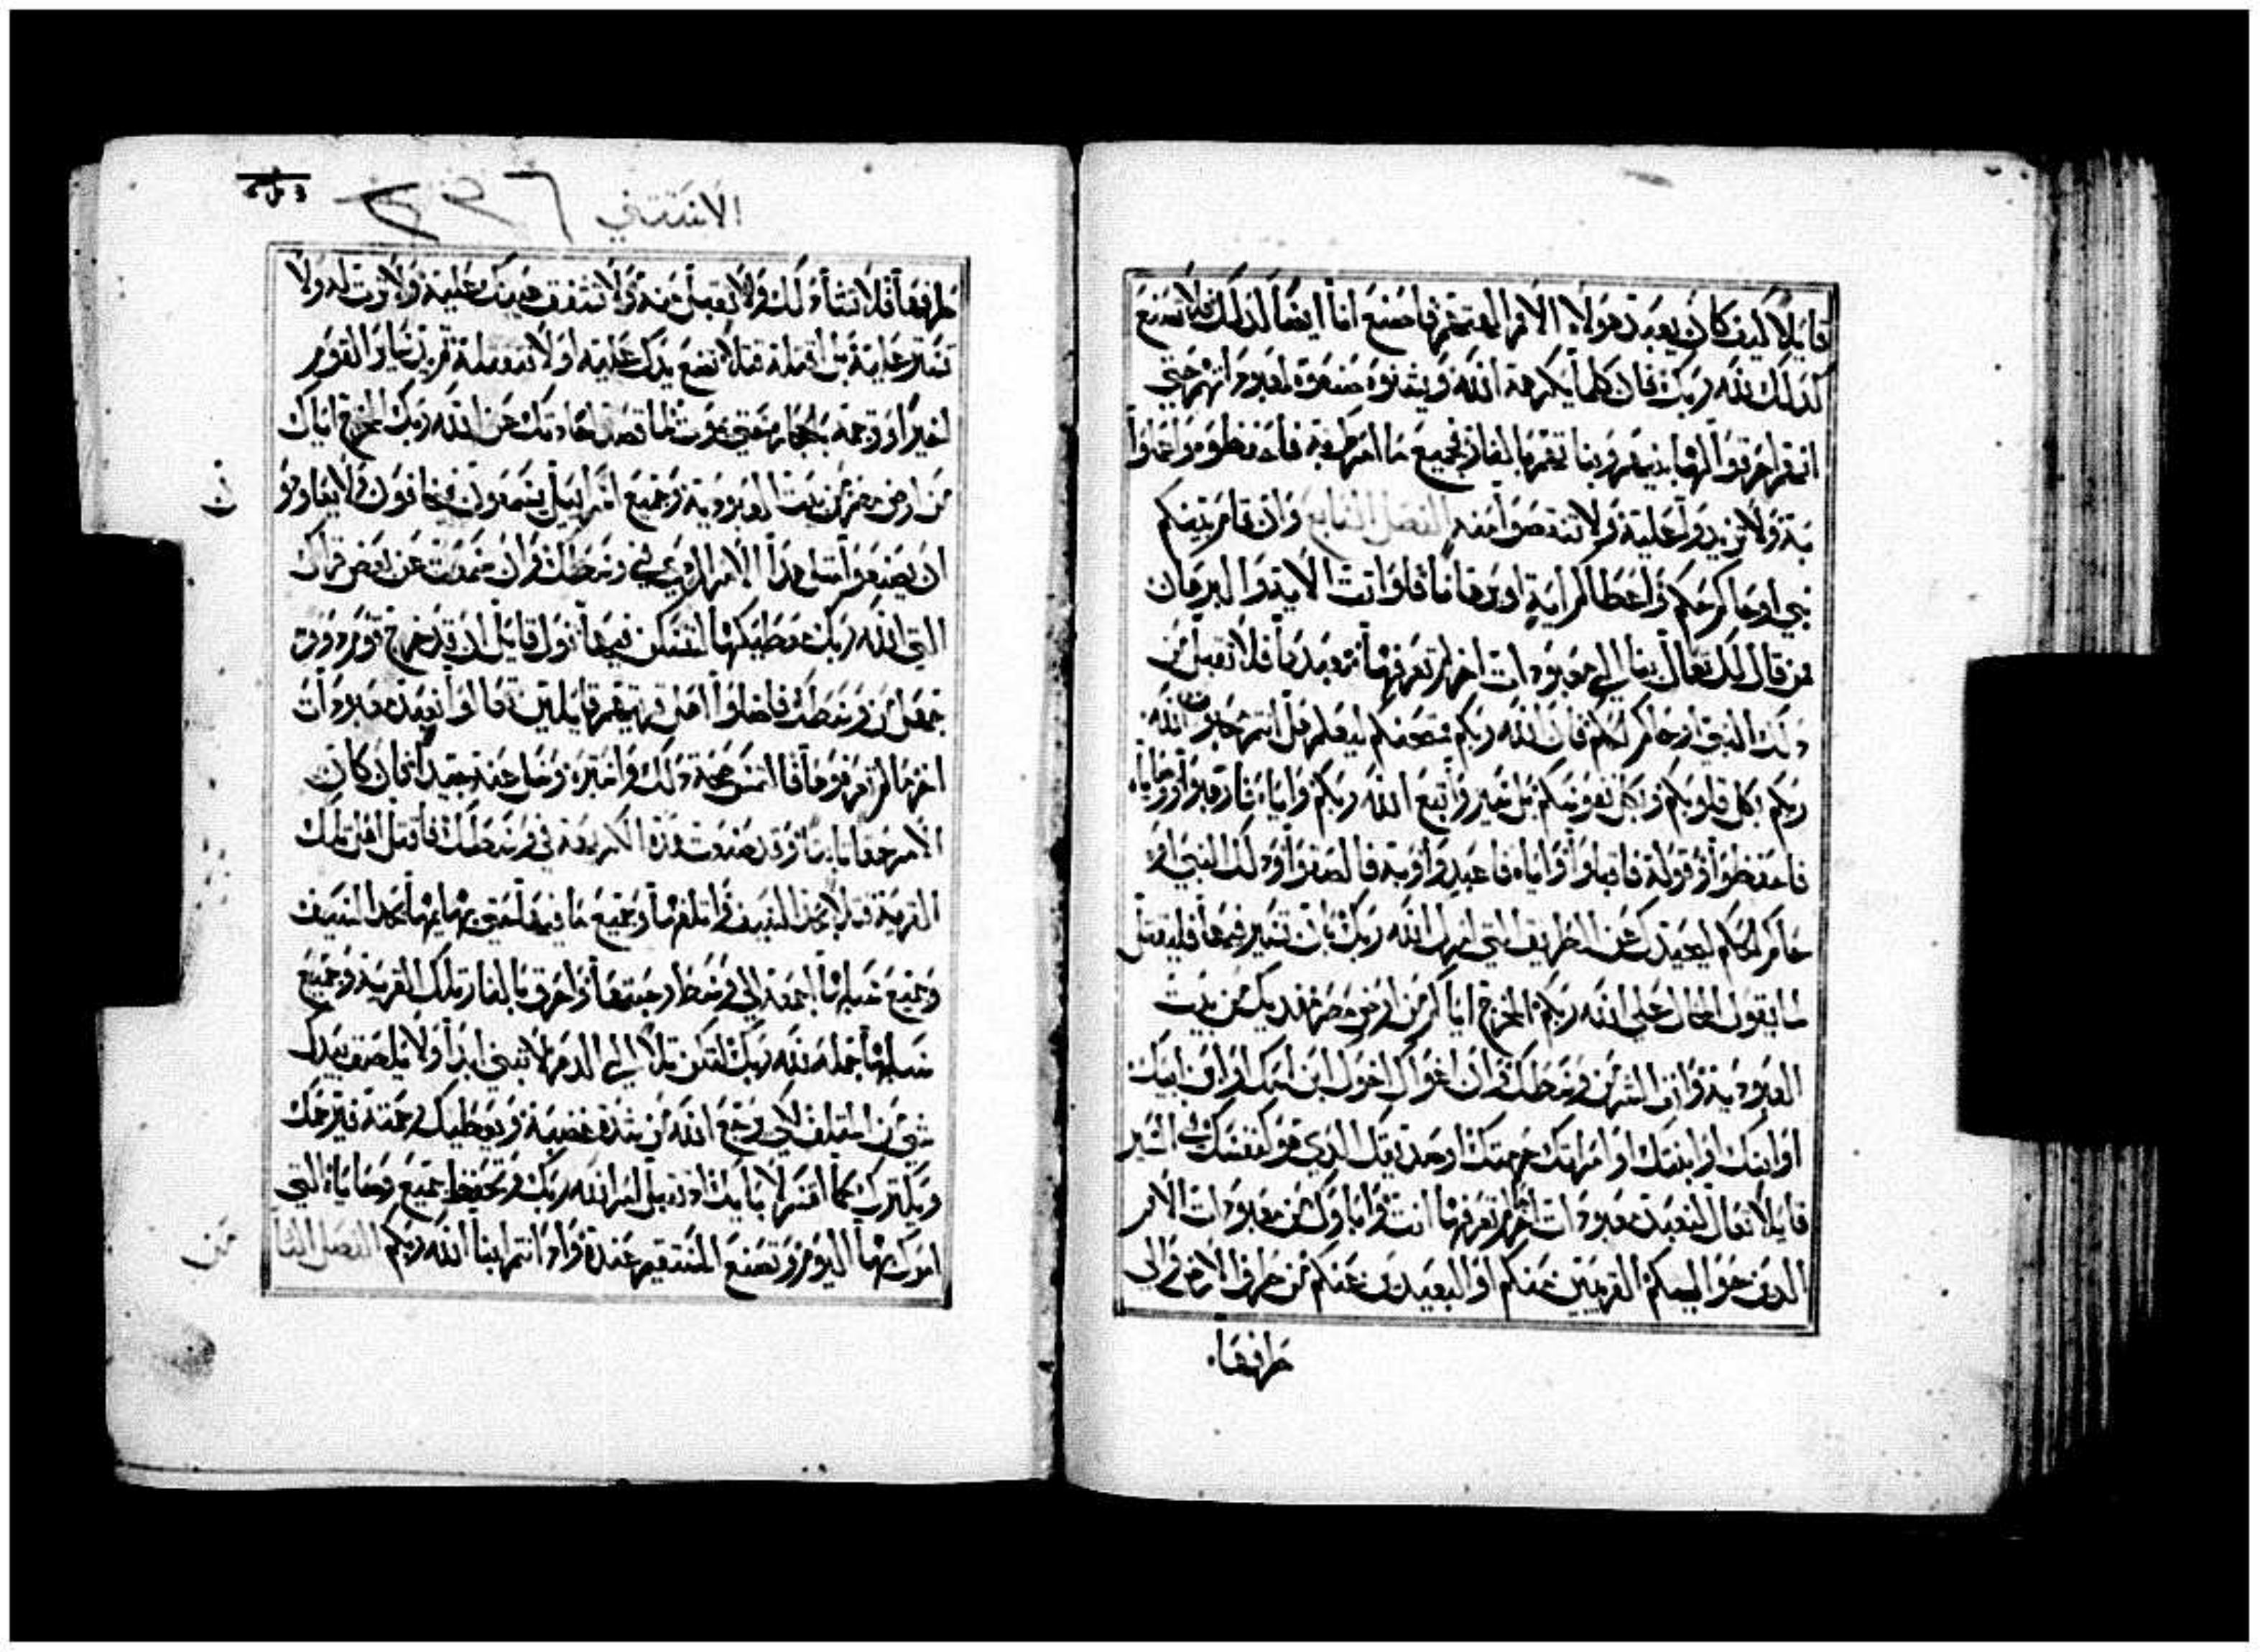 قايلا كيف كان يعبدن هولاء الامم الهتهم فاصنع انا ايضا لذلك فلا تصنع
كذلك لله ربك فان كلما يكرهه الله ويشنوه صنعوه لمعبوداتهم حتى
انهم احرقوا ابنيهم وبناتهم بالنار جميع ما امركم به فاحفظوه واعملوا
به ولا تزيدوا عليه ولا تنقصوا منه الفصل وان قام بينكم
نبي او حاكم حكم واعطاكم اية او برهانا فلو اتت الاية والبرهان
من قال لك تعال بنا الى معبودات اخر لم تعرفها نعبدها فلا تقبل من
ذلك النبي او حاكم الحكم فان الله ربكم ممتحنكم ليعلم هل انتم محابون الله
ربكم بكل قلوبكم وبكل نفوسكم بل سير واتبع الله ربكم واياه فارهبوا ووصاياه
فاحفظوا وقوله فاقبلوا واياه فاعبدوا وبه فالصقوا وذلك النبي او
حاكم الحكم ليحيدك عن الطريق التي امرك الله ربك بان تسير فيها فليقتل
لما يقول المحال على الله ربكم المخرج اياكم من ارض مصر من بيت
العبودية وانف الشر من وسطك وان اغواك اخوك ابن امك او ابن ابيك
او ابنك او ابنتك او امراتك او صديقك الذي هو كنفسك في الستر
قايلا تعال لنعبد معبودات اخر لم تعرفها انت واباوك من معبودات الامم
الذين حواليكم القريبين منكم او البعيدين عنكم من طرف الارض والى
طرفها
الاستثني ٢٢٦
طرفها فلا تشاء ذلك ولا تقبل منه ولا تشفق عينك عليه ولا ترث له ولا
تستر عليه بل اقتله قتلا تضع يدك عليه اولا لتقتله ثم يد ساير القوم
اخيرا وارجمه بالحجارة حتى يموت لما قصد عن الله ربك المخرج اياك
من ارض مصر من بيت العبودية وجميع اسرايل يسمعون فيخافون ولا يعاودو
ان يصنعوا مثل هذا الامر الردي في وسطك وان سمعت عن بعض قراك
التي الله ربك معطيكها لتسكن فيها قول قايل ان قد خرج قوم
من وسطك فاضلوا اهل قريتهم قايلين تعالوا نعبد معبودات
اخر ما لم تعرفوها فالتمس صحة ذلك واختبره وسل عنه جيدا فان كان
الامر حقا ثابتا وقد صنعت هذه الكريهة في وسطك فاقتل اهل تلك
القرية قتلا بحد السيف واتلفها وجميع ما فيها حتى بهايمها بحد السيف
وجميع سلبها اجمعه الى وسط رحبتها واحرق بالنار تلك القرية وجميع
سلبها جملة لله ربك لتكن تلا الى الدهر لا تبنى ابدا ولا يلصق بيدك
شي من المتلف لكي يرجع الله من شدة غضبه ويعطيك رحمته فيرحمك
ويكثرك كما اقسم لابايك اذ تقبل امر الله ربك وتحفظ جميع وصاياه التي
امرك بها اليوم وتصنع المستقيم عنده واذ انتم ابنا الله ربكم الفصل الثا